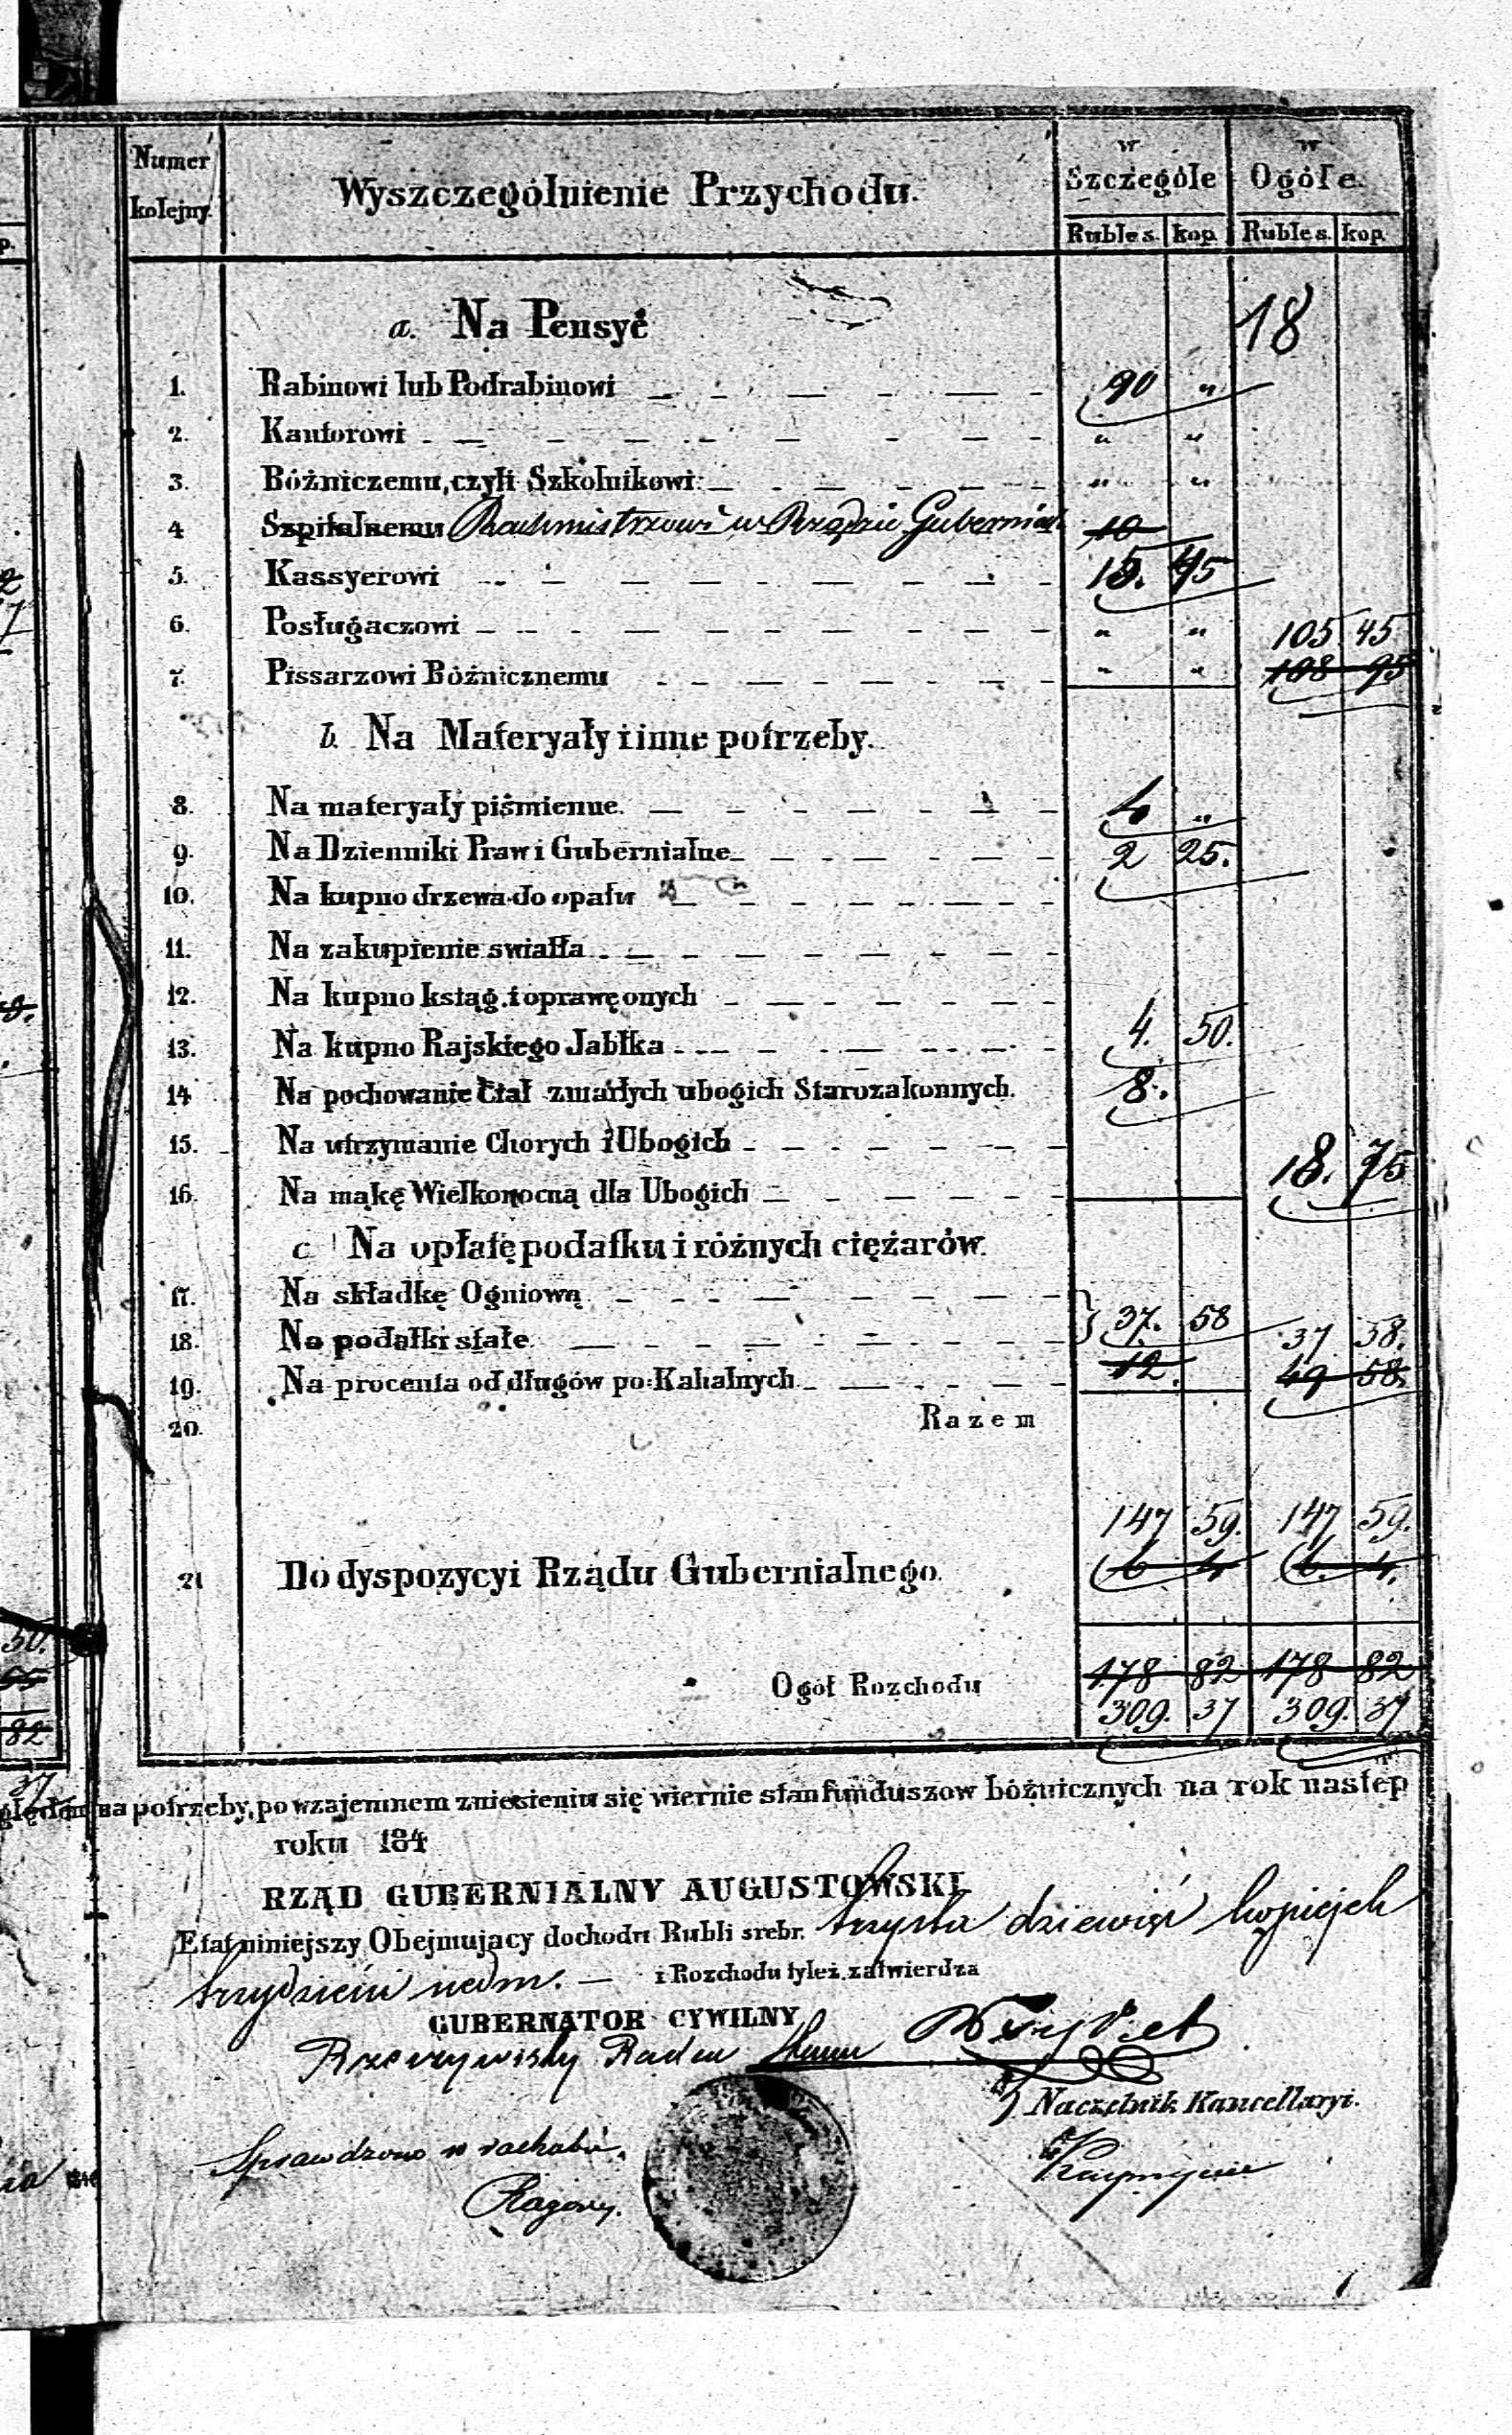 Numer kolejny.
Wyszczególnienie Przychodu.
w Szczególe
w Ogóle.
Ruble s. kop. Ruble s. kop.
p.
18
a. Na Pensyę
1. Rabinowi lub Podrabinowi 90 "
2. Kantorowi " "
3. Bóżniczemu, czyli Szkolnikowi " "
4 Szpitalnemu Rachmistrzowi w Rządzie Gubernial 10
5. Kassyerowi 15. 45
6. Posługaczowi " " 105 45
7. Pissarzowi Bóżnicznemu " " 108 95
b. Na Materyały i inne potrzeby.
8. Na materyały piśmienne. 4 "
9. Na Dzienniki Praw i Gubernialne 2 25.
10. Na kupno drzewa do opału
11. Na zakupienie swiatła
12. Na kupno ksiąg i oprawę onych
13. Na kupno Rajskiego Jabłka 4. 50.
14 Na pochowanie Ciał zmarłych ubogich Starozakonnych. 8.
15. Na utrzymanie Chorych i Ubogich
16. Na mąkę Wielkonocną dla Ubogich 18. 75
c Na opłatę podatku i różnych ciężarów.
17. Na składkę Ogniową
18. Na podatki stałe. 37. 58 37 58.
19. Na procenta od długów po-Kahalnych 12. 49 58.
20. Razem
147 59. 147 59.
21 Do dyspozycyi Rządu Gubernialnego. 6 4 6. 4.
Ogół Rozchodu 178 82 178 82
309. 37 309. 37
50.
82
37
na potrzeby, po wzajemnem zniesieniu się wiernie stan funduszow bóżnicznych na rok nastep
roku 184
RZĄD GUBERNIALNY AUGUSTOWSKI
Etat niniejszy Obejmujący dochodu Rubli srebr. trzysta dziewięć kopiejek
trzydzieści siedm. — i Rozchodu tyleż zatwierdza
GUBERNATOR CYWILNY
Rzeczywisty Radca Stanu
Naczelnik Kancellaryi.
Sprawdzono w rachubie